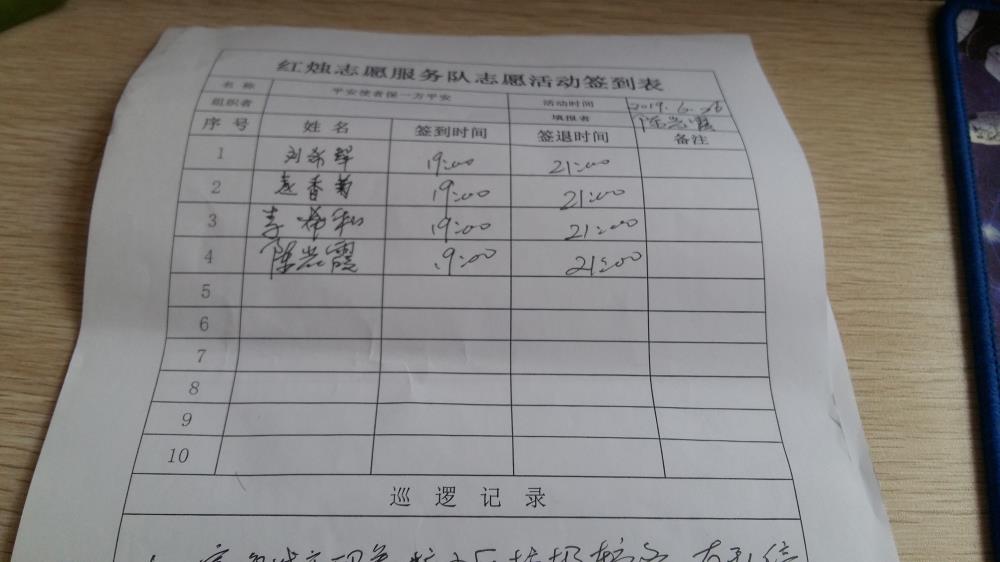 红烛志愿服务队志愿活动签到表
名 称 平安使者保一方平安 活动时间 2019.6.26
组织者 填报者 陈兰霞
序 号 姓 名 签到时间 签退时间 备注
1 19:00 21:00
2 香菊 19:00 21:00
3 李 19:00 21:00
4 陈兰霞 19:00 21:00
5
6
7
8
9
10
巡 逻 记 录